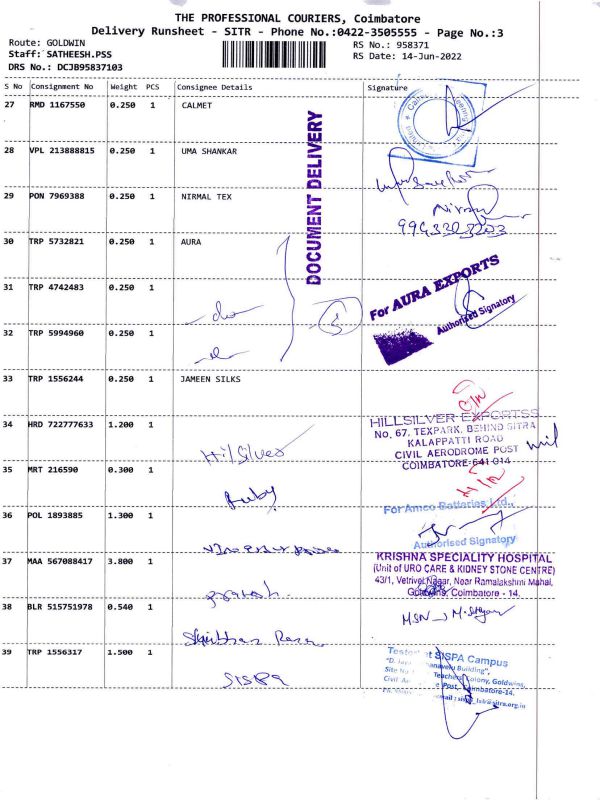 THE PROFESSIONAL COURIERS, Coimbatore
Delivery Runsheet - SITR - Phone No.:0422-3505555 - Page No.:3
Route: GOLDWIN
RS No.: 958371
Staff: SATHEESH.PSS
RS Date: 14-Jun-2022
DRS No.: DCJB95837103
S No Consignment No Weight PCS Consignee Details Signature
27 RMD 1167550 0.250 1 CALMET
28 VPL 213888815 0.250 1 UMA SHANKAR
29 PON 7969388 0.250 1 NIRMAL TEX
30 TRP 5732821 0.250 1 AURA
DOCUMENT DELIVERY
31 TRP 4742483 0.250 1
For AURA EXPORTS
Authorised Signatory
32 TRP 5994960 0.250 1
33 TRP 1556244 0.250 1 JAMEEN SILKS
34 HRD 722777633 1.200 1 HilSilver
HILLSILVER EXPORTSS
No. 67, TEXPARK, BEHIND SITRA
KALAPPATTI ROAD
CIVIL AERODROME POST
COIMBATORE-641 014
35 MRT 216590 0.300 1 Ruby
36 POL 1893885 1.300 1
For Amco Batteries Ltd.,
Authorised Signatory
37 MAA 567088417 3.800 1
KRISHNA SPECIALITY HOSPITAL
(Unit of URO CARE & KIDNEY STONE CENTRE)
43/1, Vetrivel Nagar, Near Ramalakshmi Mahal,
Goldwins, Coimbatore - 14.
38 BLR 515751978 0.540 1
39 TRP 1556317 1.500 1 SISPA
at SISPA Campus
Building",
Teachers Colony, Goldwins,
Post, Coimbatore-14.